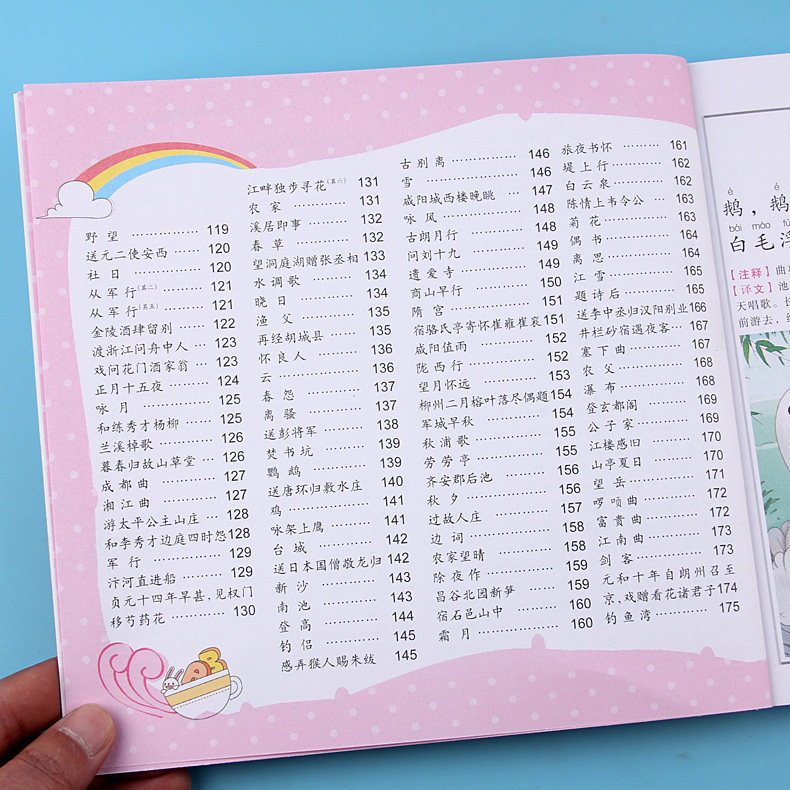 野望 ………… 119
送元二使安西 …… 120
社日 ………… 120
从军行(其二) ……… 121
从军行(其五) ……… 121
金陵酒肆留别 …… 122
渡浙江问舟中人 … 123
戏问花门酒家翁 … 123
正月十五夜 ……… 124
咏月 ………… 125
和练秀才杨柳 …… 125
兰溪棹歌 ……… 126
暮春归故山草堂 … 126
成都曲 ………… 127
湘江曲 ………… 127
游太平公主山庄 … 128
和李秀才边庭四时怨 128
军行 ………… 129
汴河直进船 ……… 129
贞元十四年旱甚,见权门
移芍药花 ……… 130
江畔独步寻花(其六) 131
农家 ………… 131
溪居即事 ……… 132
春草 ………… 132
望洞庭湖赠张丞相 133
水调歌 ………… 134
晓日 ………… 134
渔父 ………… 135
再经胡城县 ……… 135
怀良人 ………… 136
云 ………… 136
春怨 ………… 137
离骚 ………… 137
送彭将军 ……… 138
焚书坑 ………… 139
鹦鹉 ………… 139
送唐环归敷水庄 … 140
鸡 ………… 141
咏架上鹰 ……… 141
台城 ………… 142
送日本国僧敬龙归 142
新沙 ………… 143
南池 ………… 143
登高 ………… 144
钓侣 ………… 145
感弄猴人赐朱绂 … 145
古别离 ………… 146
雪 ………… 146
咸阳城西楼晚眺 … 147
咏风 ………… 148
古朗月行 ……… 148
问刘十九 ……… 149
遗爱寺 ………… 149
商山早行 ……… 150
隋宫 ………… 150
宿骆氏亭寄怀崔雍崔衮 151
咸阳值雨 ……… 152
陇西行 ………… 152
望月怀远 ……… 153
柳州二月榕叶落尽偶题 154
军城早秋 ……… 154
秋浦歌 ………… 155
劳劳亭 ………… 155
齐安郡后池 ……… 156
秋夕 ………… 156
过故人庄 ……… 157
边词 ………… 158
农家望晴 ……… 158
除夜作 ………… 159
昌谷北园新笋 …… 159
宿石邑山中 ……… 160
霜月 ………… 160
旅夜书怀 ……… 161
堤上行 ………… 162
白云泉 ………… 162
陈情上韦令公 …… 163
菊花 ………… 163
偶书 ………… 164
离思 ………… 164
江雪 ………… 165
题诗后 ………… 165
送李中丞归汉阳别业 166
井栏砂宿遇夜客 … 167
塞下曲 ………… 167
农父 ………… 168
瀑布 ………… 168
登玄都阁 ……… 169
公子家 ………… 169
江楼感旧 ……… 170
山亭夏日 ……… 170
望岳 ………… 171
啰唝曲 ………… 172
富贵曲 ………… 172
江南曲 ………… 173
剑客 ………… 173
元和十年自朗州召至
京,戏赠看花诸君子 174
钓鱼湾 ………… 175
é é
鹅,鹅
bái máo fú
白毛浮
【注释】曲
【译文】池
天唱歌。
前游去,
B